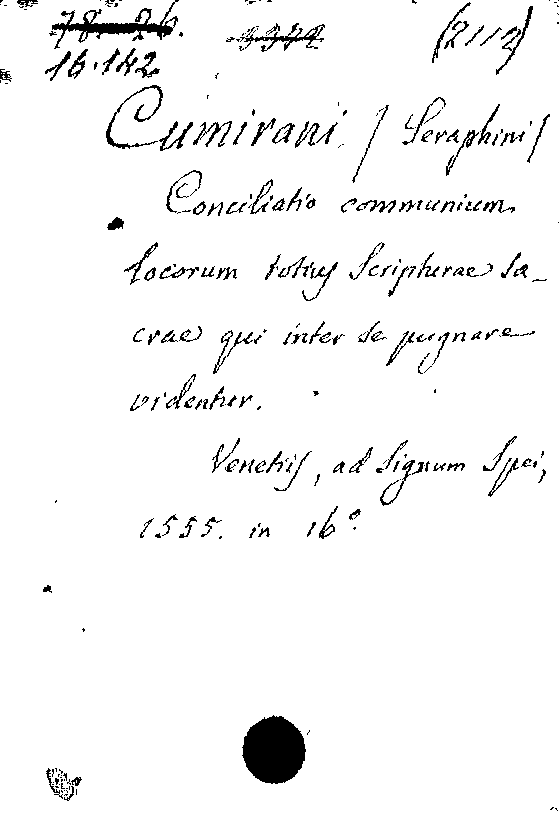 78. 26. 3372 (2112)
16.142.
Cumirani / Seraphini /
Conciliatio communium
locorum totius Scripturae Sa-
crae qui inter se pugnare
videntur.
Venetiis, ad Signum Spei,
1555. in 16°